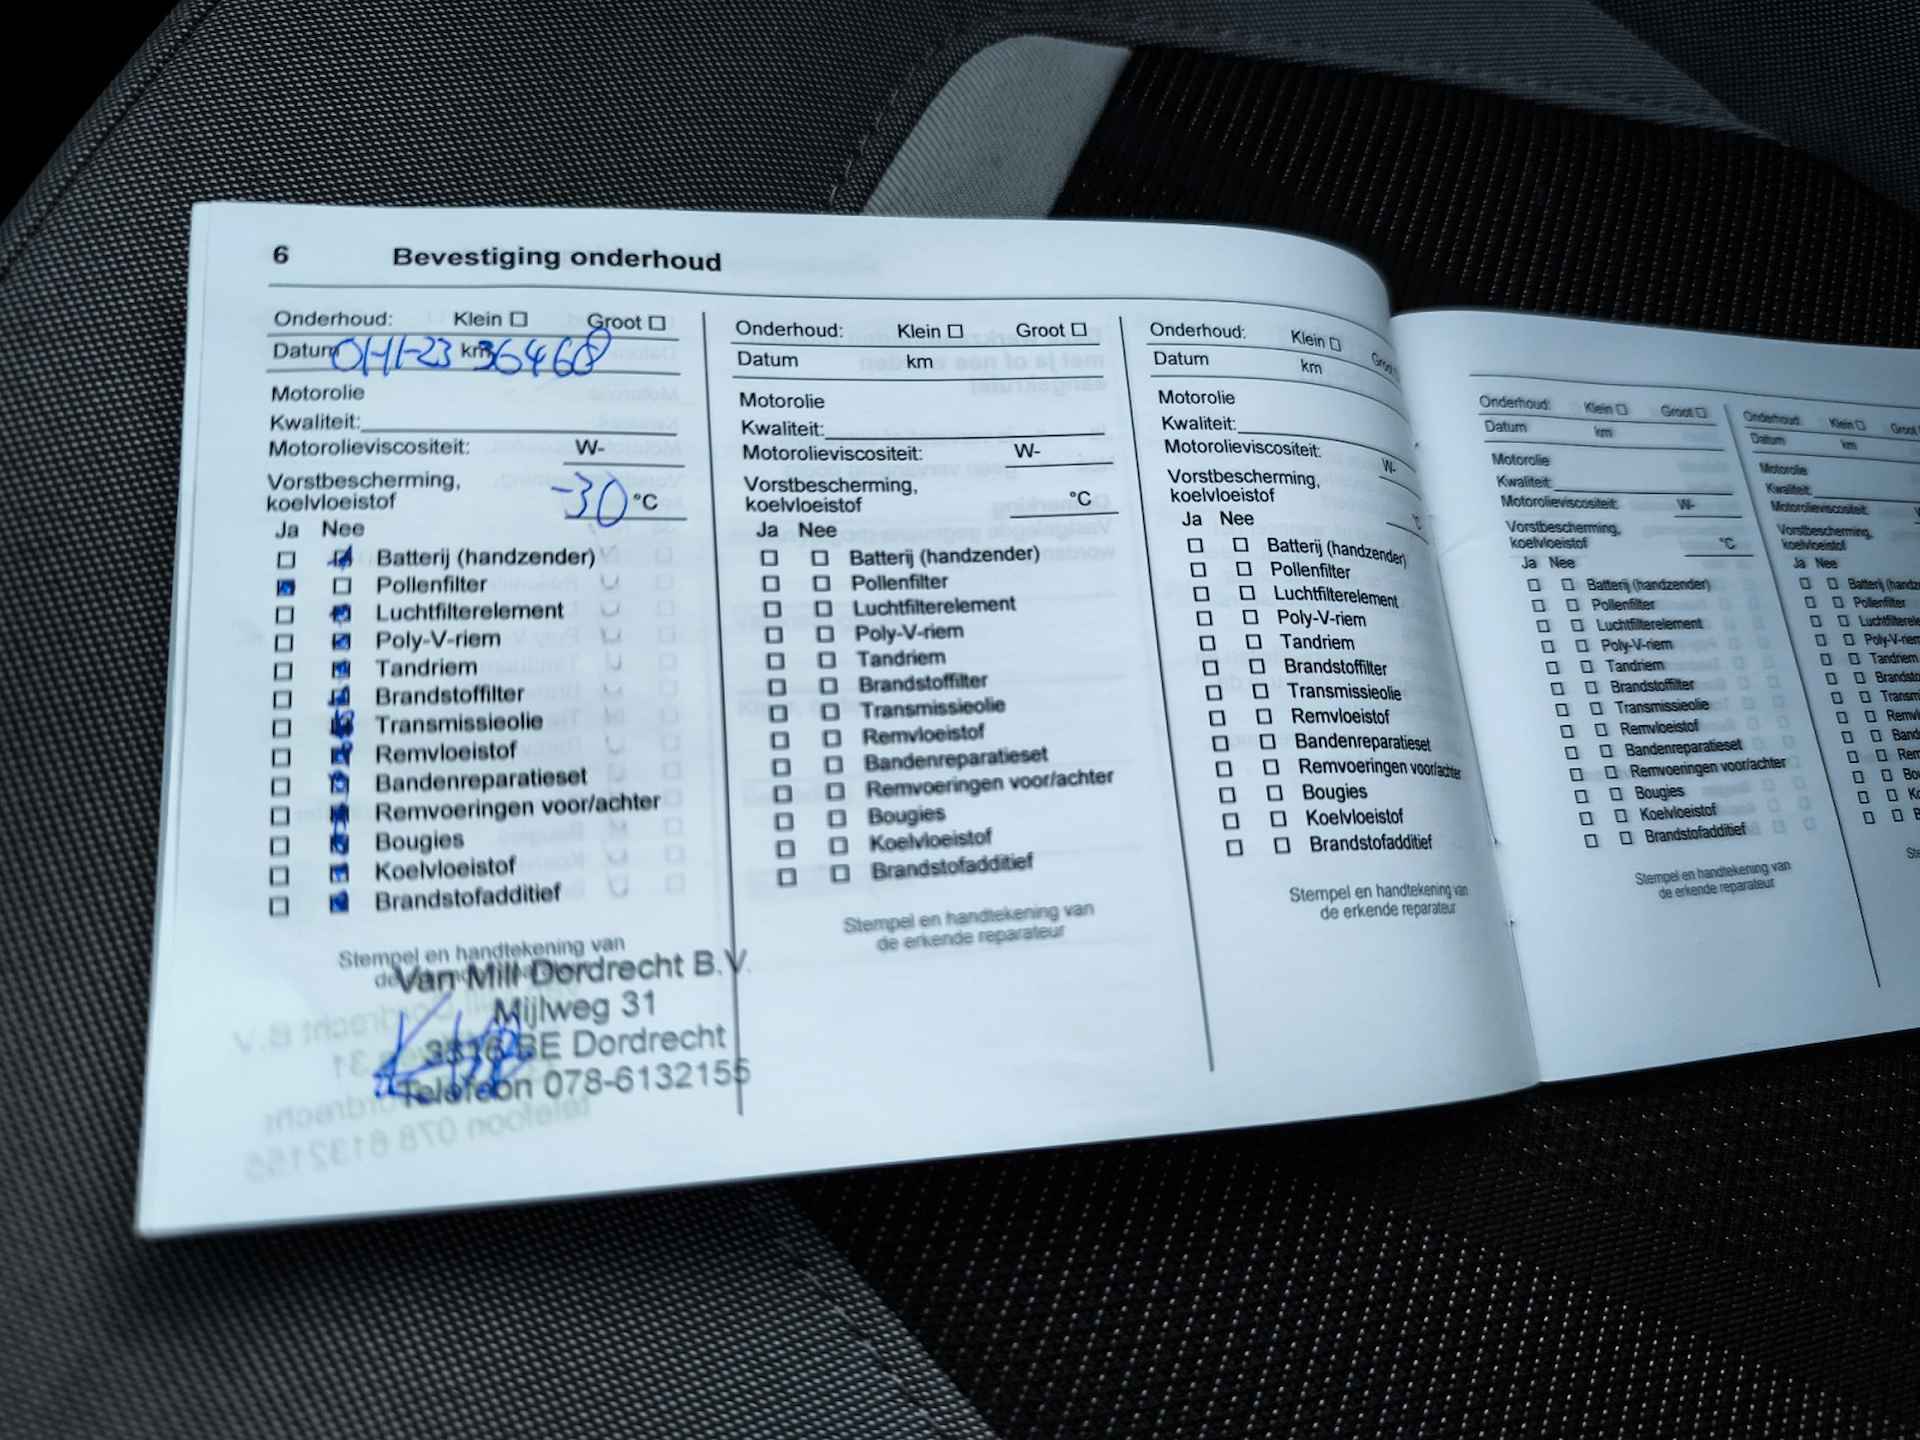 6 Bevestiging onderhoud
Onderhoud: Klein Groot
Datum 01-11-23 km 36468
Motorolie
Kwaliteit:
Motorolieviscositeit: W-
Vorstbescherming,
koelvloeistof -30 °C
Ja Nee
Batterij (handzender)
Pollenfilter
Luchtfilterelement
Poly-V-riem
Tandriem
Brandstoffilter
Transmissieolie
Remvloeistof
Bandenreparatieset
Remvoeringen voor/achter
Bougies
Koelvloeistof
Brandstofadditief
Stempel en handtekening van
Van Mill Dordrecht B.V.
Mijlweg 31
3316 BE Dordrecht
Telefoon 078-6132155
Onderhoud: Klein Groot
Datum km
Motorolie
Kwaliteit:
Motorolieviscositeit: W-
Vorstbescherming,
koelvloeistof °C
Ja Nee
Batterij (handzender)
Pollenfilter
Luchtfilterelement
Poly-V-riem
Tandriem
Brandstoffilter
Transmissieolie
Remvloeistof
Bandenreparatieset
Remvoeringen voor/achter
Bougies
Koelvloeistof
Brandstofadditief
Stempel en handtekening van
de erkende reparateur
Onderhoud: Klein
Datum km
Motorolie
Kwaliteit:
Motorolieviscositeit: W-
Vorstbescherming,
koelvloeistof
Ja Nee
Batterij (handzender)
Pollenfilter
Luchtfilterelement
Poly-V-riem
Tandriem
Brandstoffilter
Transmissieolie
Remvloeistof
Bandenreparatieset
Remvoeringen voor/achter
Bougies
Koelvloeistof
Brandstofadditief
Stempel en handtekening van
de erkende reparateur
Onderhoud: Klein Groot
Datum km
Motorolie
Kwaliteit:
Motorolieviscositeit: W-
Vorstbescherming,
koelvloeistof °C
Ja Nee
Batterij (handzender)
Pollenfilter
Luchtfilterelement
Poly-V-riem
Tandriem
Brandstoffilter
Transmissieolie
Remvloeistof
Bandenreparatieset
Remvoeringen voor/achter
Bougies
Koelvloeistof
Brandstofadditief
Stempel en handtekening van
de erkende reparateur
Onderhoud: Klein Groot
Datum km
Motorolie
Kwaliteit:
Motorolieviscositeit:
Vorstbescherming,
koelvloeistof
Ja Nee
Batterij
Pollenfilter